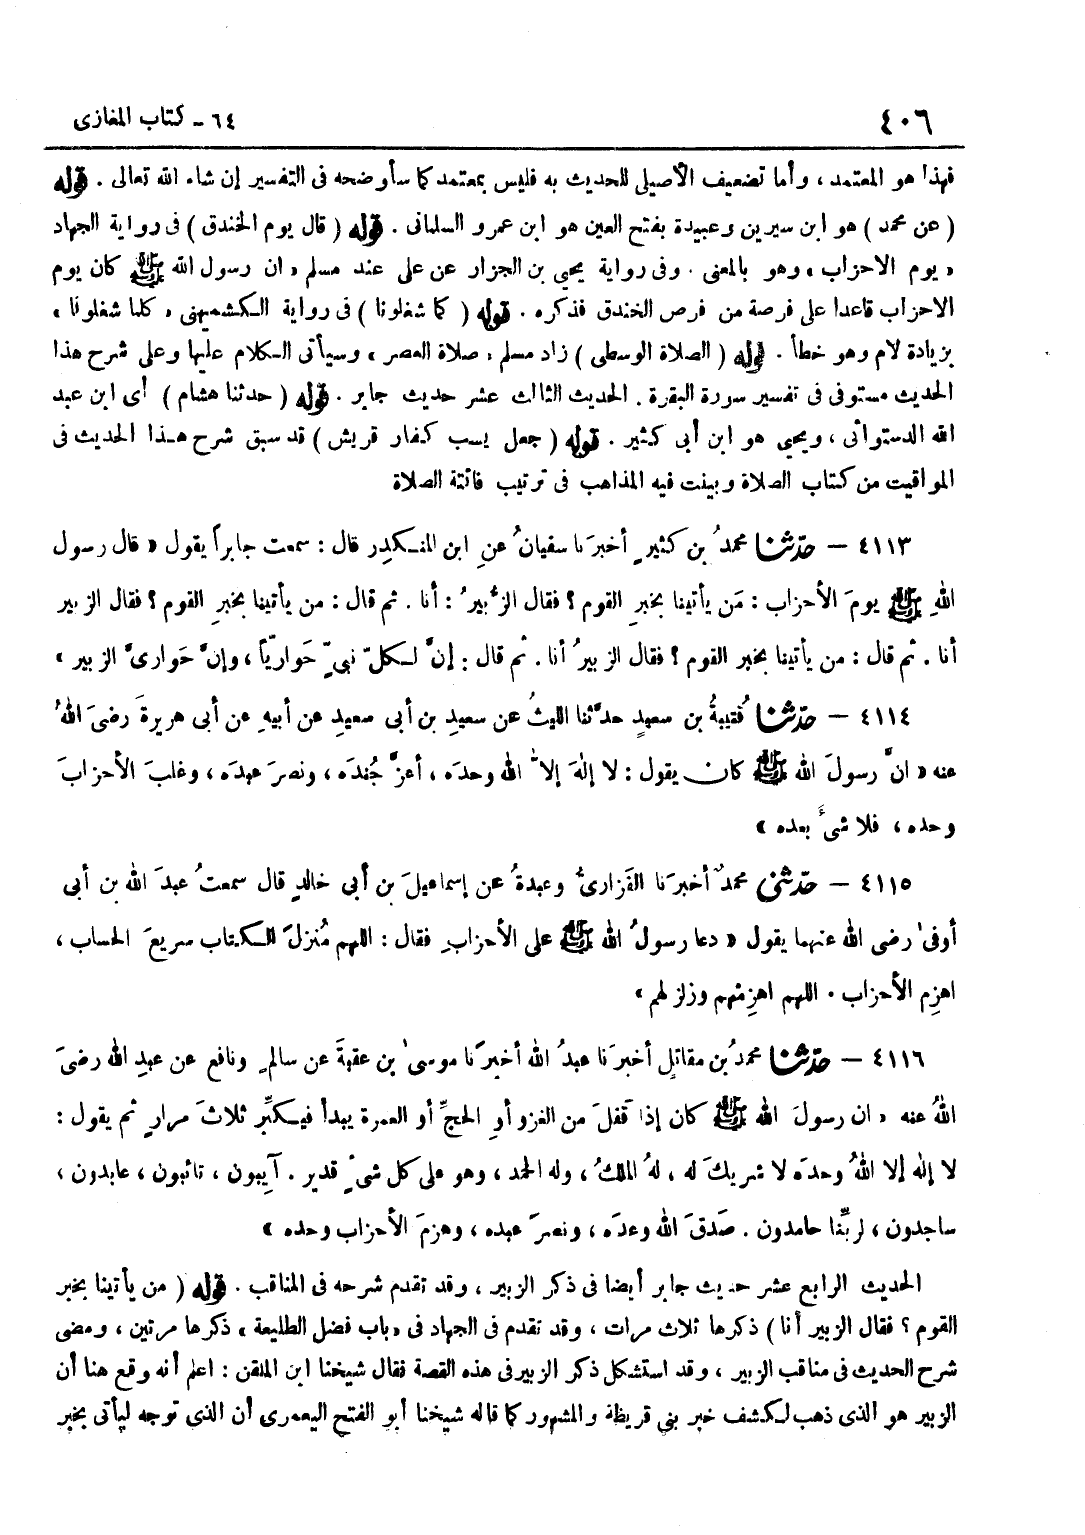 ٤٠٦ ٦٤ - كتاب المغازى
فهذا هو المعتمد ، وأما تضعيف الأصيلى للحديث به فليس بمعتمد كما سأوضحه فى التفسير إن شاء الله تعالى . قوله
( عن محمد ) هو ابن سيرين وعبيدة بفتح العين هو ابن عمرو السلمانى . قوله ( قال يوم الخندق ) فى رواية الجهاد
« يوم الاحزاب » وهو بالمعنى . وفى رواية يحيى بن الجزار عن على عند مسلم « ان رسول الله ﷺ كان يوم
الاحزاب قاعدا على فرصة من فرص الخندق فذكره . قوله ( كما شغلونا ) فى رواية الكشميهنى « كلما شغلونا »
بزيادة لام وهو خطأ . قوله ( الصلاة الوسطى ) زاد مسلم « صلاة العصر » وسيأتى الكلام عليها وعلى شرح هذا
الحديث مستوفى فى تفسير سورة البقرة . الحديث الثالث عشر حديث جابر . قوله ( حدثنا هشام ) أى ابن عبد
الله الدستوائى ، ويحيى هو ابن أبى كثير . قوله ( جعل يسب كفار قريش ) قد سبق شرح هذا الحديث فى
المواقيت من كتاب الصلاة وبينت فيه المذاهب فى ترتيب فائتة الصلاة
٤١١٣ - حدّثنا محمدُ بن كثيرٍ أخبرَنا سفيانُ عنِ ابن المنكدِر قال : سمعت جابراً يقول « قال رسول
اللهِ ﷺ يومَ الأحزاب : مَن يأتينا بخبرِ القوم ؟ فقال الزُّبيرُ : أنا . ثم قال : من يأتينا بخبرِ القوم ؟ فقال الزبير
أنا . ثم قال : من يأتينا بخبر القوم ؟ فقال الزبيرُ أنا . ثم قال : إنَّ لكلّ نبيّ حَواريّاً ، وإنَّ حَوارىَّ الزبير »
٤١١٤ - حدّثنا قُتيبةُ بن سعيدٍ حدَّثنا الليثُ عن سعيدِ بن أبى سعيدٍ عن أبيهِ عن أبى هريرةَ رضىَ اللهُ
عنه « انَّ رسولَ الله ﷺ كان يقول : لا إلهَ إلاّ الله وحدَه ، أعزَّ جُندَه ، ونصرَ عبدَه ، وغلبَ الأحزابَ
وحده ، فلا شىءَ بعده »
٤١١٥ - حدّثنى محمدٌ أخبرَنا الفَزارىُّ وعبدةُ عن إسماعيلَ بن أبى خالدٍ قال سمعتُ عبدَ الله بن أبى
أوفىٰ رضى الله عنهما يقول « دعا رسولُ الله ﷺ على الأحزابِ فقال : اللهم مُنزلَ الكتاب سريعَ الحساب ،
اهزِم الأحزاب . اللهم اهزِمْهم وزلزلهم »
٤١١٦ - حدّثنا محمدُ بن مقاتلٍ أخبرَنا عبدُ الله أخبرَنا موسىٰ بن عقبةَ عن سالمٍ ونافع عن عبدِ الله رضىَ
اللهُ عنه « ان رسولَ الله ﷺ كان إذا قَفلَ من الغزو أوِ الحجِّ أو العمرة يبدأ فيكبِّر ثلاثَ مرارٍ ثم يقول :
لا إله إلا اللهُ وحدَه لا شريكَ له ، لهُ الملكُ ، وله الحمد ، وهو على كل شىءٍ قدير . آيِبون ، تائبون ، عابدون ،
ساجدون ، لربِّنا حامدون . صَدقَ الله وعدَه ، ونصرَ عبده ، وهزمَ الأحزاب وحده »
الحديث الرابع عشر حديث جابر أيضا فى ذكر الزبير ، وقد تقدم شرحه فى المناقب . قوله ( من يأتينا بخبر
القوم ؟ فقال الزبير أنا ) ذكرها ثلاث مرات ، وقد تقدم فى الجهاد فى « باب فضل الطليعة » ذكرها مرتين ، ومضى
شرح الحديث فى مناقب الزبير ، وقد استشكل ذكر الزبير فى هذه القصة فقال شيخنا ابن الملقن : اعلم أنه وقع هنا أن
الزبير هو الذى ذهب لكشف خبر بنى قريظة والمشهور كما قاله شيخنا أبو الفتح اليعمرى أن الذى توجه ليأتى بخبر